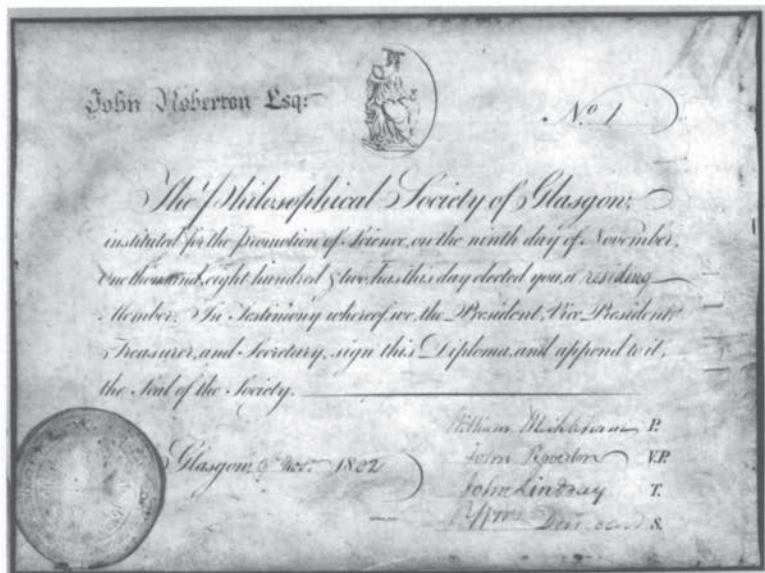 John Roberton Esq:
No. 1
The Philosophical Society of Glasgow,
instituted for the promotion of Science, on the ninth day of November,
One thousand, eight hundred & two, has this day elected you, a residing
Member. In Testimony whereof, we, the President, Vice President,
Treasurer, and Secretary, sign this Diploma, and append to it,
the Seal of the Society.
William P.
Glasgow, Nov. 1802
John Roberton V.P.
John Lindsay T.
S.